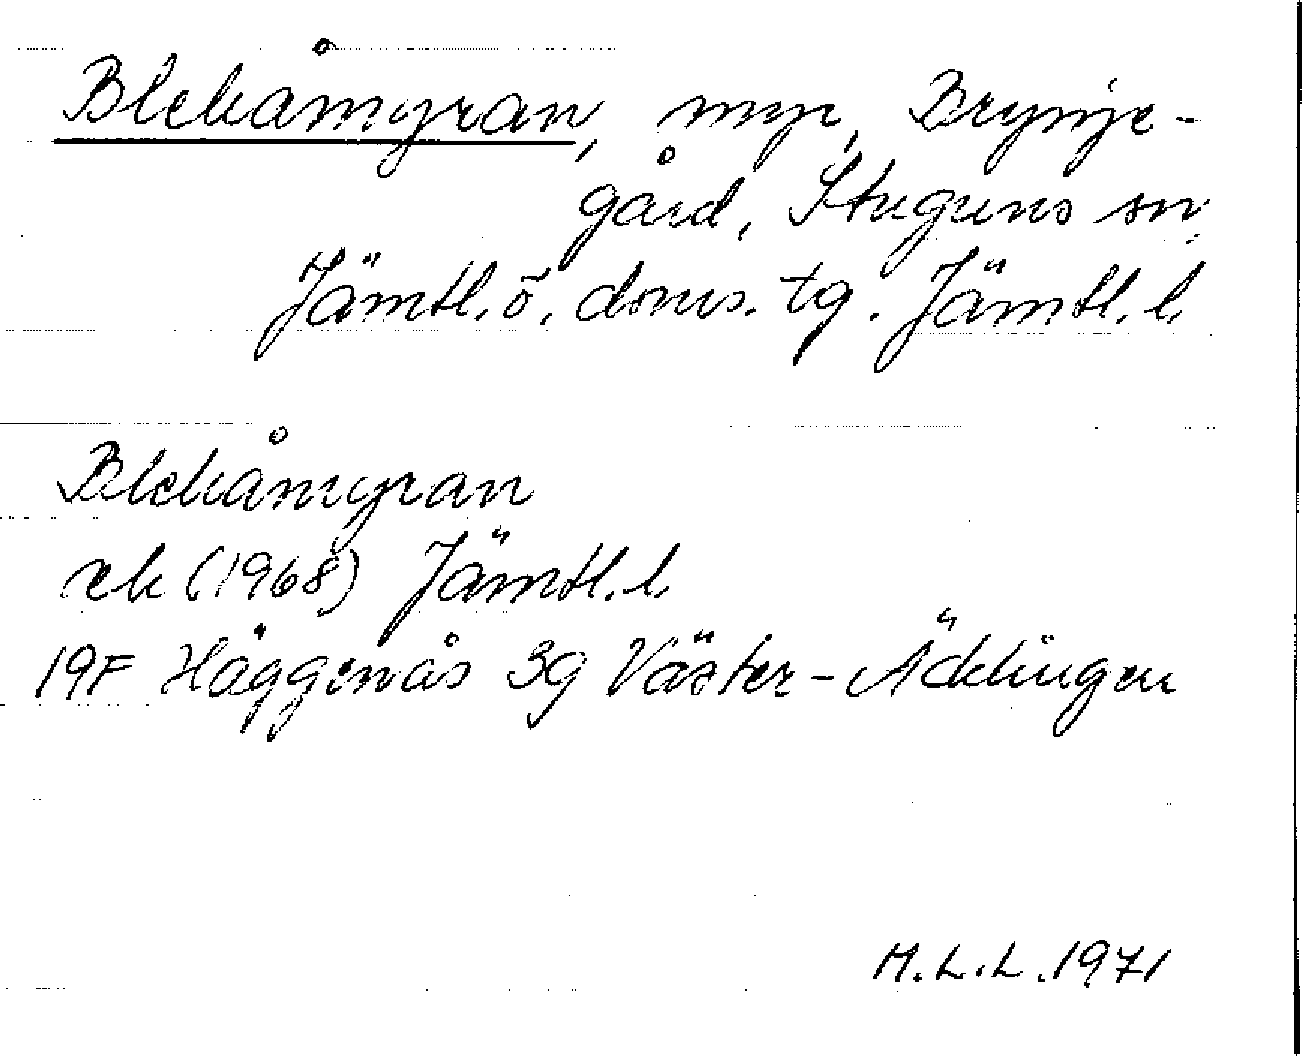 Blekåmyran, myr, Brynje-
gård, Stuguns sn,
Jämtl. ö. doms. tg. Jämtl. l.
Blekåmyran
ek (1968) Jämtl. l.
19F Häggenås 3g Väster-Acklingen
M.L.L. 1971